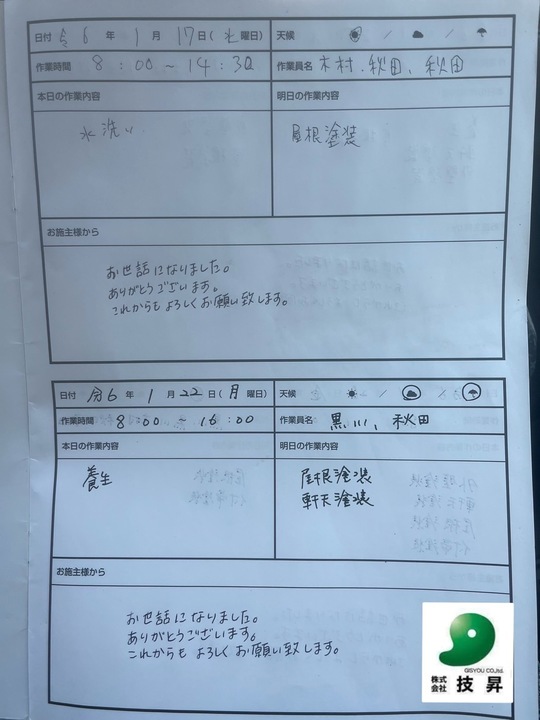 日付 令6年 1月 17日(水曜日) 天候 / /
作業時間 8:00～14:30 作業員名 木村、秋田、秋田
本日の作業内容 明日の作業内容
水洗い 屋根塗装
お施主様から
お世話になりました。
ありがとうございます。
これからもよろしくお願い致します。
日付 令6年 1月 22日(月曜日) 天候 / /
作業時間 8:00～16:00 作業員名 黒川、秋田
本日の作業内容 明日の作業内容
養生 屋根塗装
軒天塗装
お施主様から
お世話になりました。
ありがとうございます。
これからもよろしくお願い致します。
GISYOU CO.,ltd.
株式会社 技昇